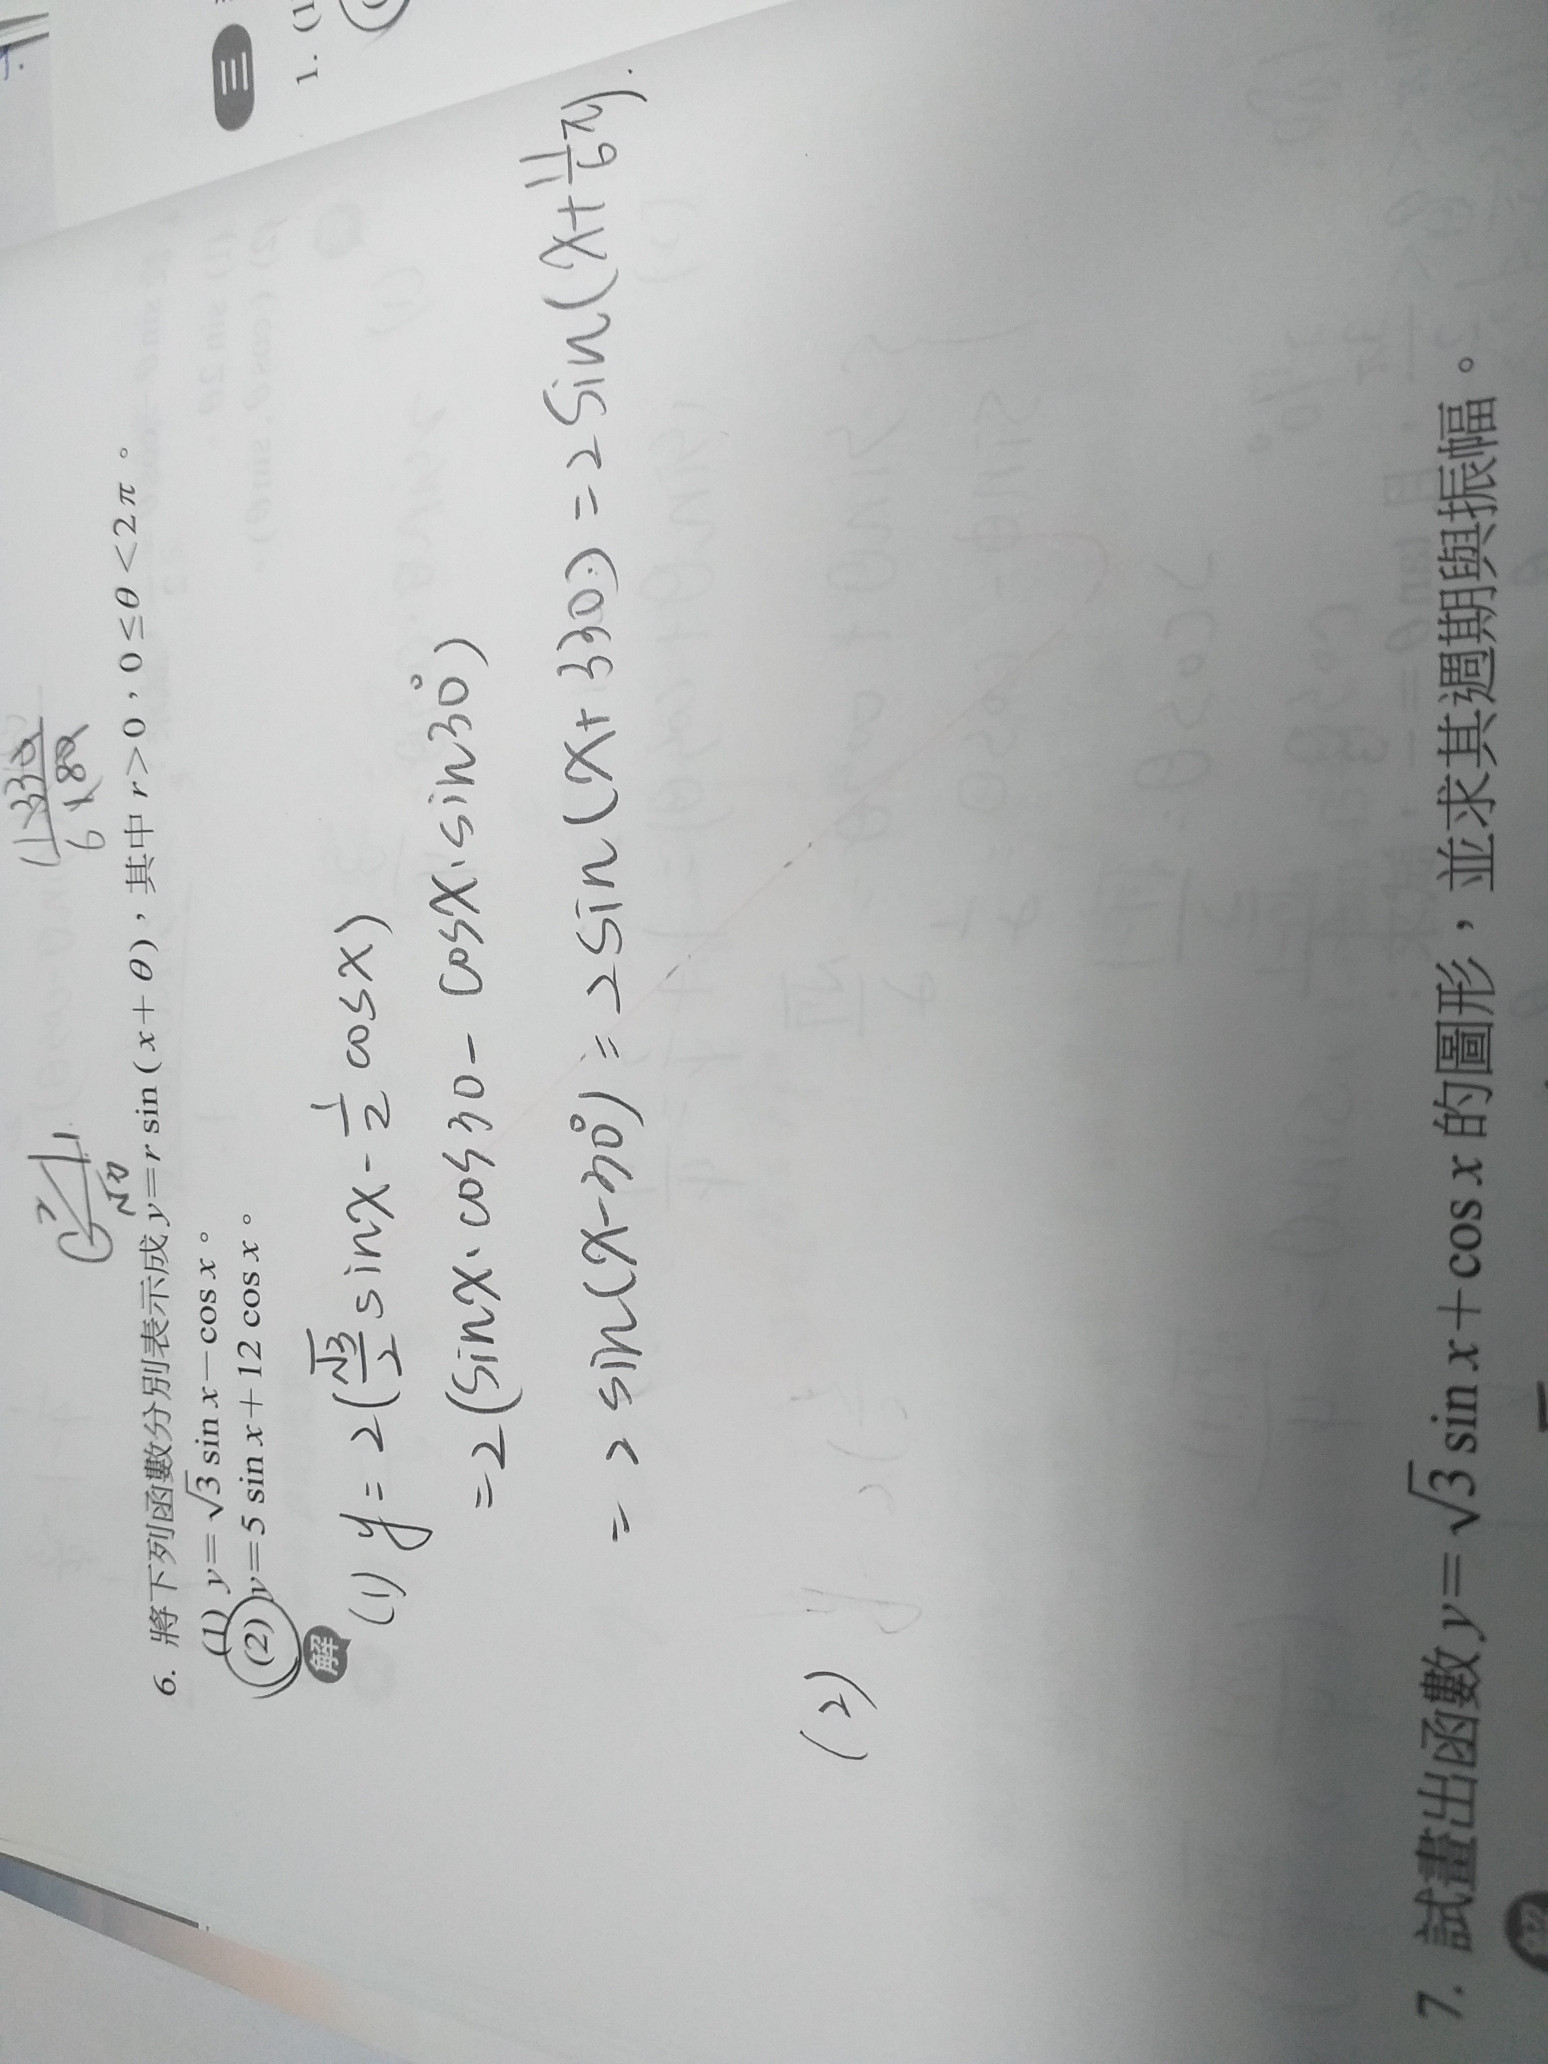 三
1. (1
6. 將下列函數分別表示成 y=r sin(x+θ),其中 r>0,0≤θ<2π。
(1) y=√3 sin x−cos x。
(2) y=5 sin x+12 cos x。
解
(1) y=2(√3/2 sinx-1/2 cosx)
=2(sinx·cos30-cosx·sin30°)
=2sin(x-30°)=2sin(x+330)=2sin(x+11/6π).
(2)
7. 試畫出函數 y=√3 sin x+cos x 的圖形,並求其週期與振幅。
解